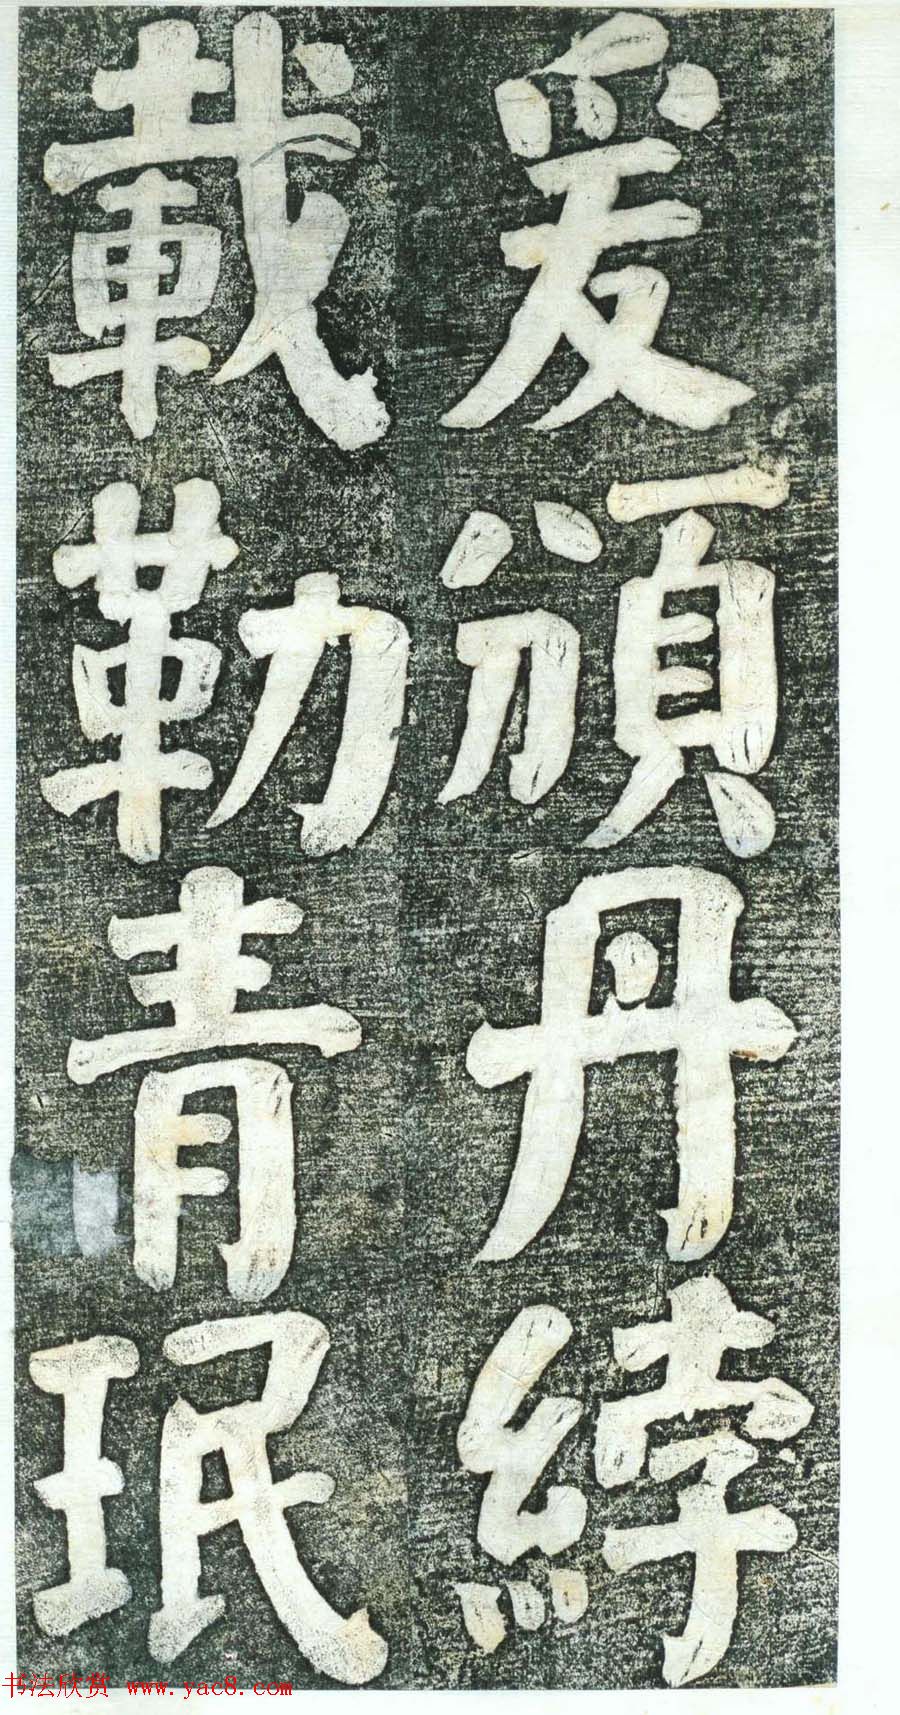 爰頒丹綍
載勒青珉
书法欣赏 www.yac8.com